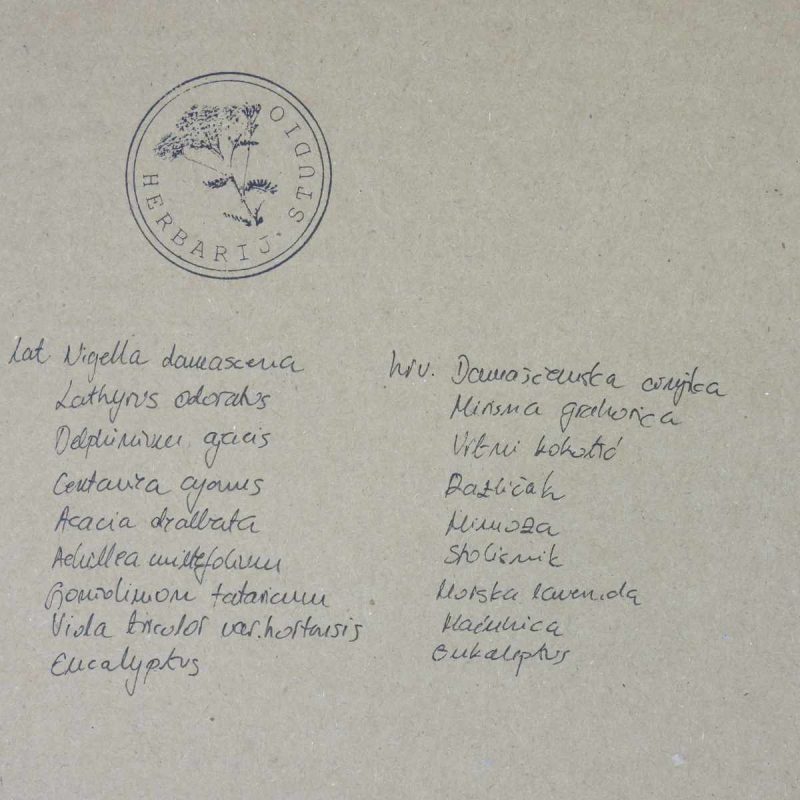 HERBARIJ · STUDIO
Lat. Nigella damascena
Lathyrus odoratus
Delphinium ajacis
Centaurea cyanus
Acacia dealbata
Achillea millefolium
Goniolimon tataricum
Viola tricolor var. hortensis
Eucalyptus
hrv. Damašćanska crnjika
Mirisna grahorica
Vrtni kokotić
Različak
Mimoza
Stolisnik
Morska lavenda
Maćuhica
Eukaliptus